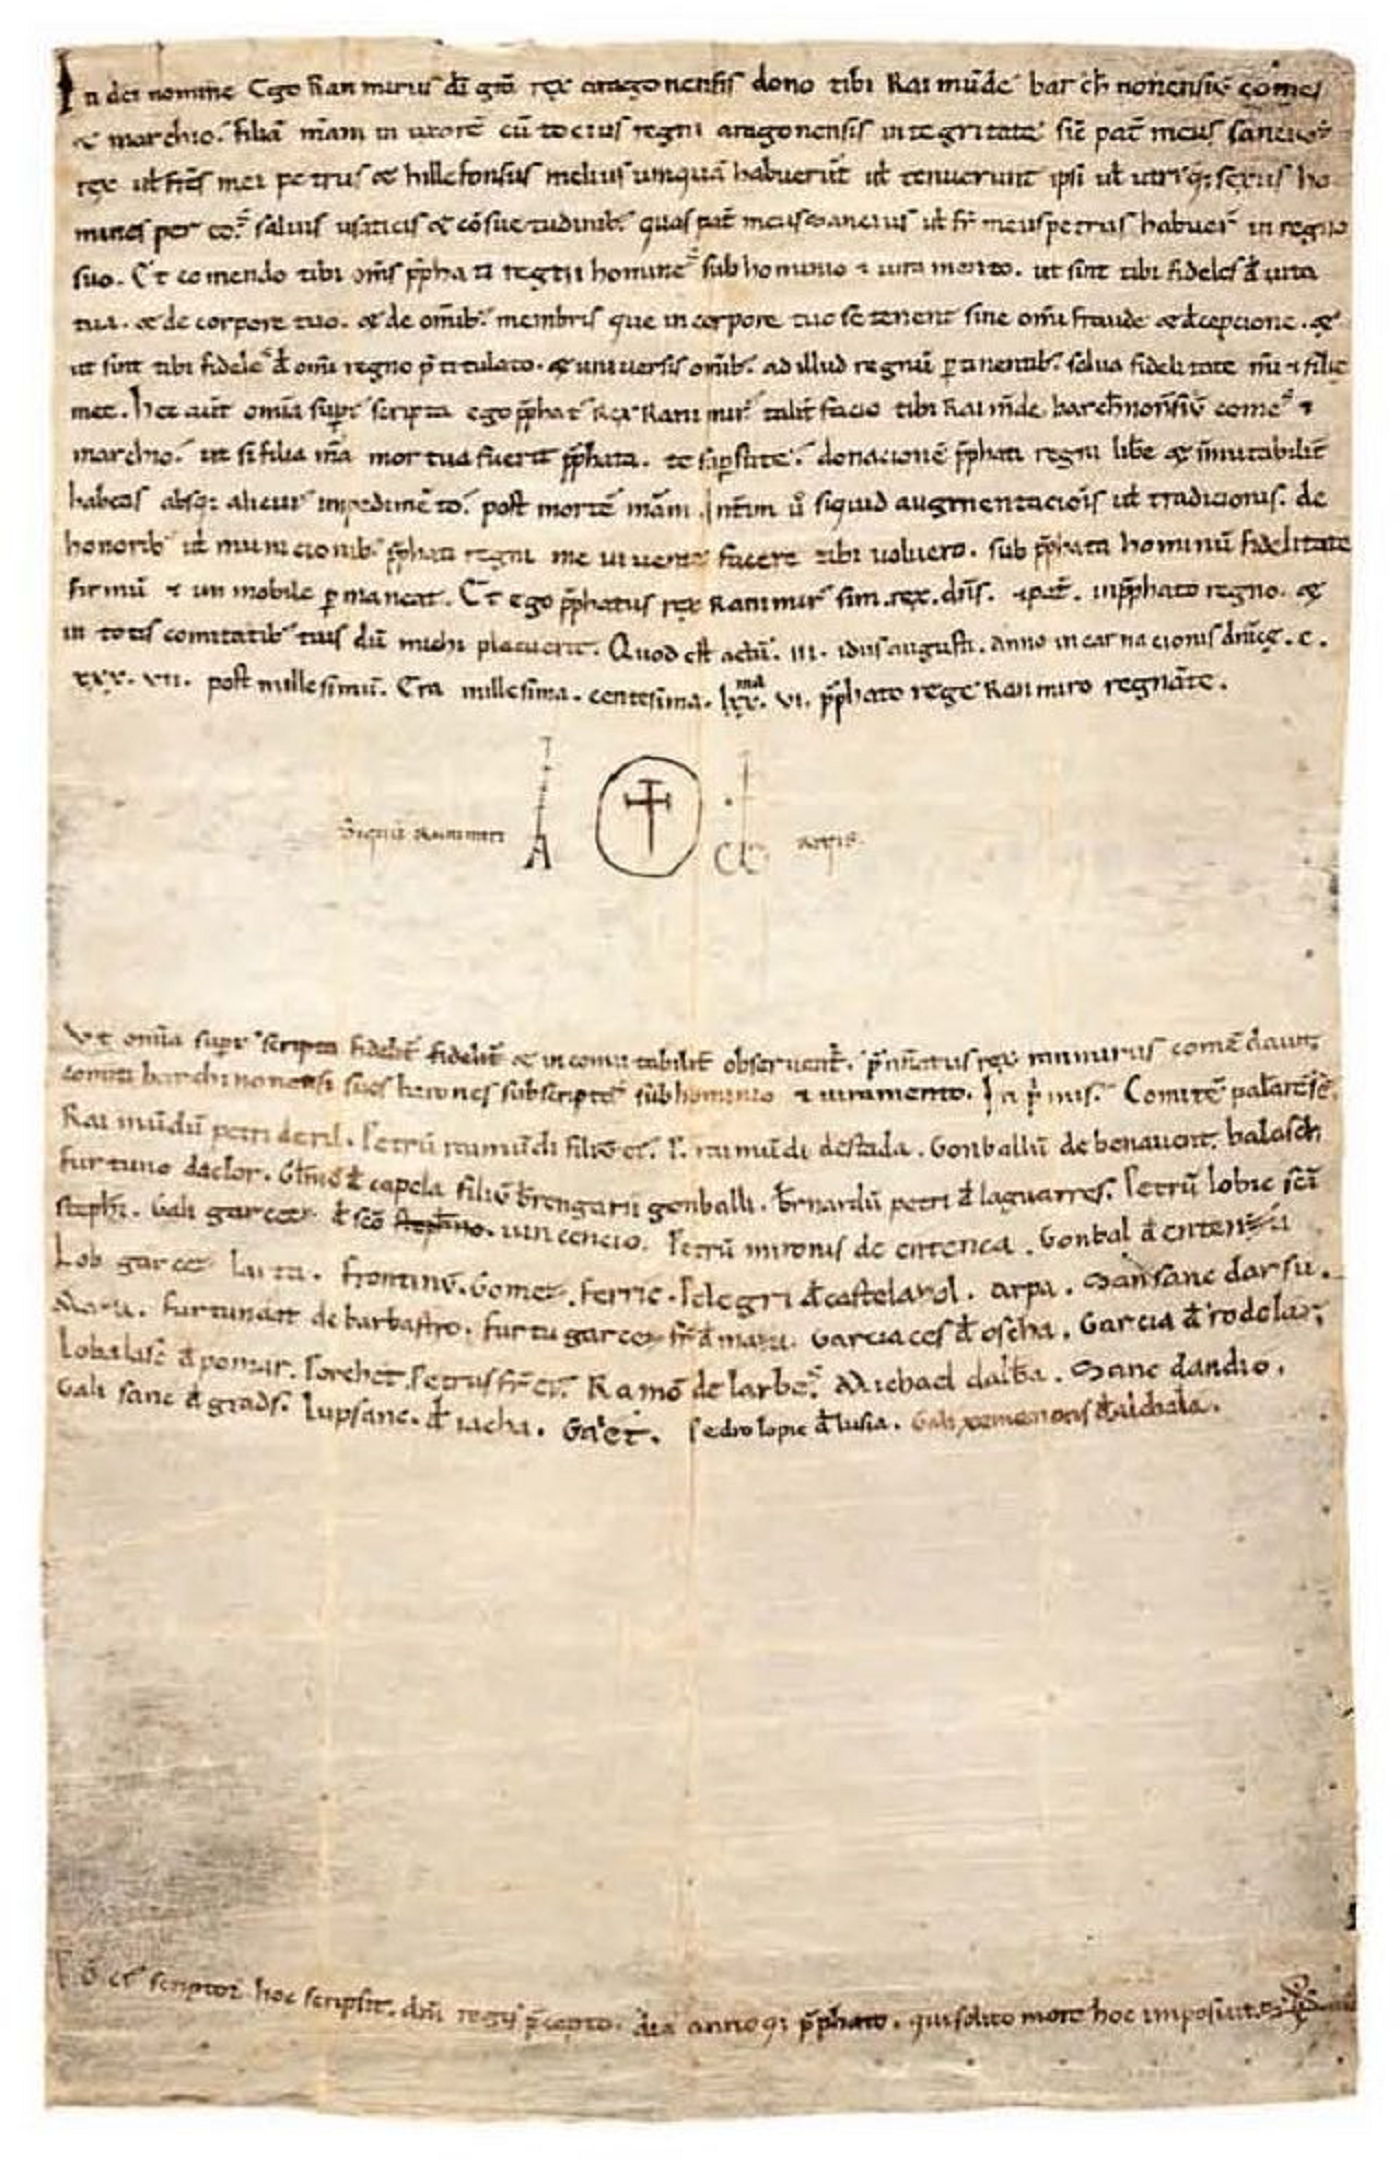 In dei nomine Ego Ranimirus dī grā rex aragonensis dono tibi Raimūde barchnonensiū comes
& marchio. filiā m̄am in uxorē cū tocius regni aragonensis integritate sic̄ pat̄ meus sancius
rex ul̄ fr̄es mei petrus & hillefonsus melius umquā habuerūt ul̄ tenuerunt ipsi ul̄ utriq; sexus ho
mines per eos saluis usaticis & cōsuetudinib; quas pat̄ meus sancius ul̄ fr̄ meus petrus habuer̄ in regno
suo. Et comendo tibi om̄s p̄phati regni homines sub hominio & iuramento. ut sint tibi fideles d̄ uita
tua. & de corpore tuo. & de om̄ib; membris que in corpore tuo se tenent sine om̄i fraude & decepcione. &
ut sint tibi fideles d̄ om̄i regno p̄titulato. & uniuersis om̄ib; ad illud regnū ꝑtinentib; salua fidelitate m̄i & filie
mee. hec aūt om̄ia sup̄scripta ego p̄phat' Rex Ranimir' talit̄ facio tibi Raim̄de barchnonn̄siū comes &
marchio. ut si filia m̄a mortua fuerit p̄phata. te sup̄stite. donacionē p̄phati regni lib̄e & īmutabilit̄
habeas absq; alicuius impedimēto. post mortē m̄am. Int̄im ū siquid augmentaciōis ul̄ tradicionis. de
honorib; ul̄ municionib; p̄phati regni me uiuente facere tibi uoluero. sub p̄phata hominū fidelitate
firmū & inmobile ꝑmaneat. Et ego p̄phatus rex Ranimir' sim. rex. dn̄s. & pat̄. in p̄phato regno. &
in totis comitatib; tuis dū michi placuerit. Quod est actū. III. idus augusti. anno incarnacionis dn̄icę. C.
XXX. VII. post millesimū. Era millesima. centesima. lxx.ma VI. p̄phato rege Ranimiro regnāte.
Signū Ranimiri A regis
Ut om̄ia sup̄scripta fidelit̄ fidelit̄ & incomutabilit̄ obseruent̄. p̄nn̄atus rex ranimirus comēdauit
comiti barchinonensi suos barones subscriptos sub hominio & iuramento. In p̄mis. Comitē palarēsē.
Raimūdū petri deril. Petrū raimūdi filiū ei'. P. raimūdi destada. Gonballū de benauent. balasch
furtuno daclor. Gl̄mō d̄ capela filiū b̄rengarii gonballi. B̄rnardū petri d̄ laguarres. Petrū lobic sc̄i
steph̄i. Gali garcez d̄ sc̄o stephano. uincencio. Petrū mironis de entenca. Gonbal d̄ entenza
Lob garcez luita. Frontinū. Gomez. Ferric. Pelegri d̄ castelazol. Arpa. Sansanc darsu.
Maza. Furtunast de barbastro. Furtu garcez fr̄ d̄ maza. Garciaces d̄ oscha. Garcia d̄ rodelar;
Lobalasc d̄ pomar. Porchet. Petrus fr̄ ei'. Ramō de larbes. Michael dalb̄a. Sanc dandio.
Gali sanc d̄ grads. Lupsanc. d̄ iacha. Pedro lopic d̄ lusia. Gali xemenonis d̄ alchala.
scriptor hoc scripsit. dn̄i regis p̄cepto. die annoq; p̄phato. qui solito more hoc imposuit